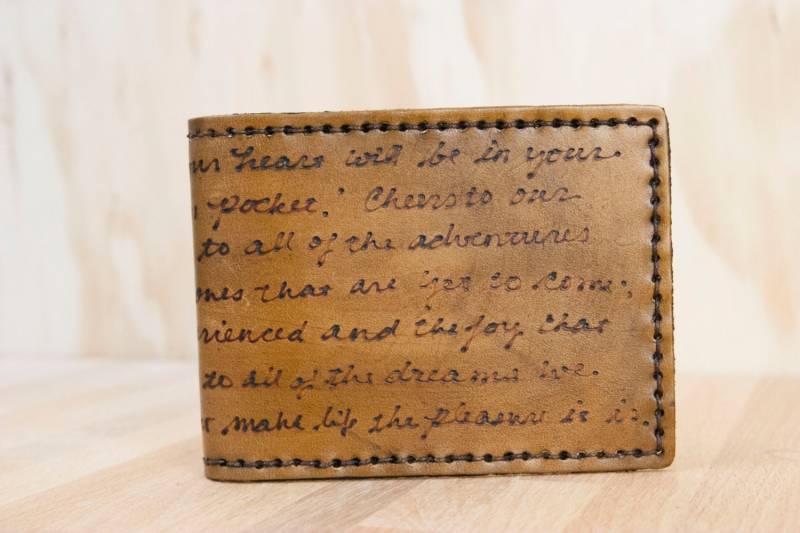 ur heart will be in your
pocket.' Cheers to our
to all of the adventures
ones that are yet to come,
rienced and the joy that
to all of the dreams we
r make life the pleasure it is.